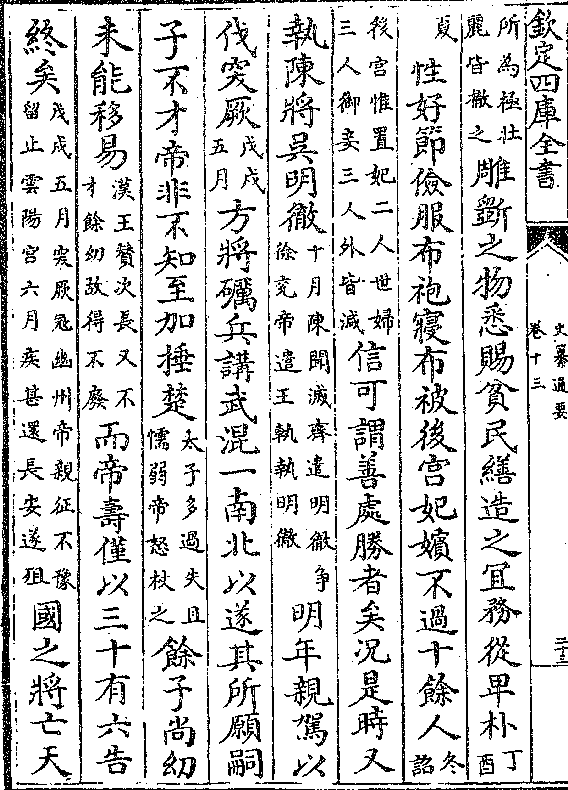 欽定四庫全書
史纂通要
卷十三
二十三
所為極壯麗皆撤之雕斵之物悉賜貧民繕造之冝務從卑朴丁酉
夏性好節儉服布袍寢布被後宮妃嬪不過十餘人冬詔
後宮惟置妃二人世婦三人御妾三人外皆減信可謂善處勝者矣况是時又
執陳將吳明徹十月陳聞滅齊遣明徹爭徐兖帝遣王執執明徹明年親駕以
伐突厥戊戌五月方將礪兵講武混一南北以遂其所願嗣
子不才帝非不知至加捶楚太子多過失且懦弱帝怒杖之餘子尚幼
未能移易漢王贊次長又不才餘幼故得不廢而帝壽僅以三十有六告
終矣戊戌五月突厥冦幽州帝親征不豫留止雲陽宮六月疾甚還長安遂殂國之將亡天